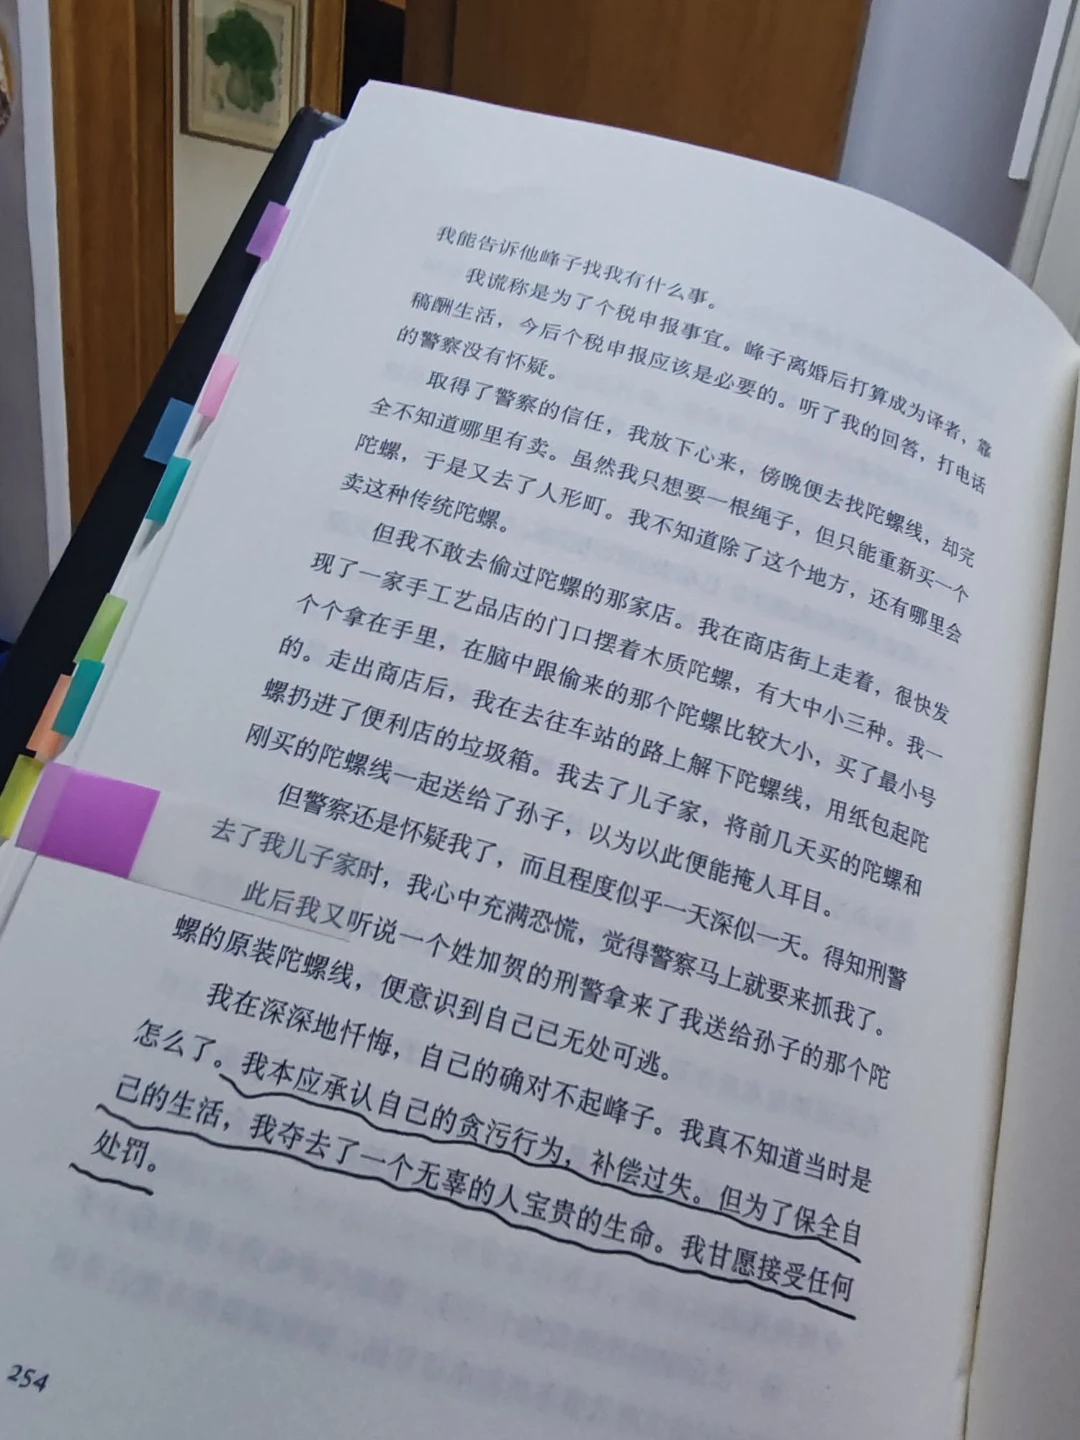 我能告诉他峰子找我有什么事。
我谎称是为了个税申报事宜。峰子离婚后打算成为译者，靠
稿酬生活，今后个税申报应该是必要的。听了我的回答，打电话
的警察没有怀疑。
取得了警察的信任，我放下心来，傍晚便去找陀螺线，却完
全不知道哪里有卖。虽然我只想要一根绳子，但只能重新买一个
陀螺，于是又去了人形町。我不知道除了这个地方，还有哪里会
卖这种传统陀螺。
但我不敢去偷过陀螺的那家店。我在商店街上走着，很快发
现了一家手工艺品店的门口摆着木质陀螺，有大中小三种。我一
个个拿在手里，在脑中跟偷来的那个陀螺比较大小，买了最小号
的。走出商店后，我在去往车站的路上解下陀螺线，用纸包起陀
螺扔进了便利店的垃圾箱。我去了儿子家，将前几天买的陀螺和
刚买的陀螺线一起送给了孙子，以为以此便能掩人耳目。
但警察还是怀疑我了，而且程度似乎一天深似一天。得知刑警
去了我儿子家时，我心中充满恐慌，觉得警察马上就要来抓我了。
此后我又听说一个姓加贺的刑警拿来了我送给孙子的那个陀
螺的原装陀螺线，便意识到自己已无处可逃。
我在深深地忏悔，自己的确对不起峰子。我真不知道当时是
怎么了。我本应承认自己的贪污行为，补偿过失。但为了保全自
己的生活，我夺去了一个无辜的人宝贵的生命。我甘愿接受任何
处罚。
254